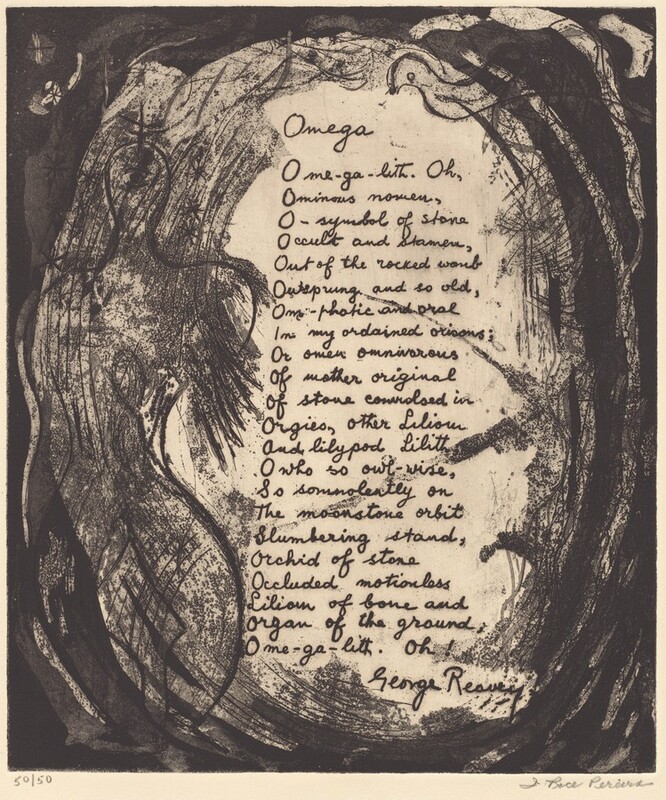 Omega
O me-ga-lith. Oh,
Ominous nomen,
O- symbol of stone
Occult and stamen,
Out of the rocked womb
Outsprung and so old,
Om-phatic and oral
In my ordained orisons;
Or omen omnivorous
Of mother original
Of stone controlsed in
Orgies, other Lilion
And lilypod Lilith
O who so owl-wise,
So somnolently on
The moonstone orbit
Slumbering stand,
Orchid of stone
Occluded motionless
Lilion of bone and
Organ of the ground;
O me-ga-lith. Oh!
George Reavey
50/50
I Rice Pereira